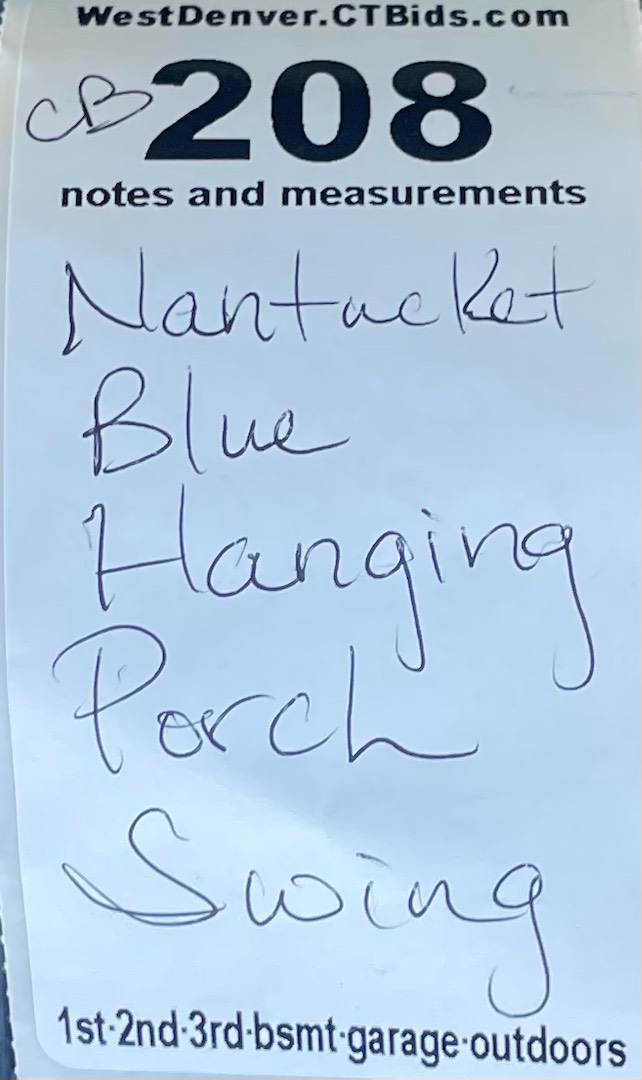 WestDenver.CTBids.com
CB 208
notes and measurements
Nantucket
Blue
Hanging
Porch
Swing
1st·2nd·3rd·bsmt·garage·outdoors